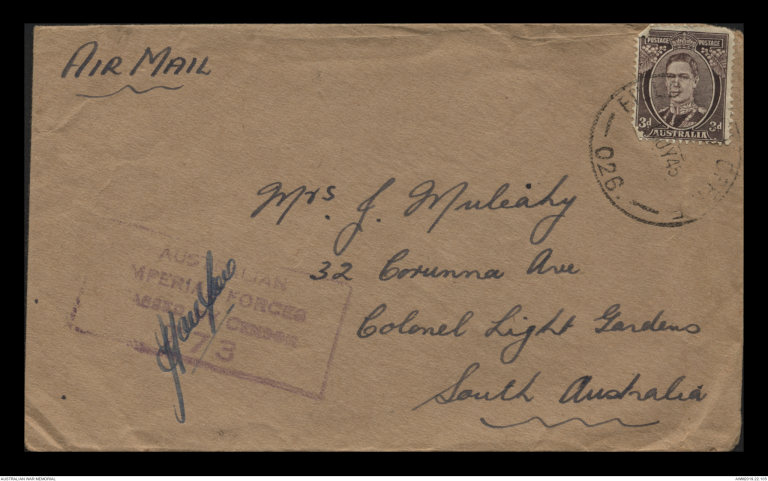 AIR MAIL
POSTAGE POSTAGE
3d 3d
AUSTRALIA
026
Mrs. J. Mulcahy
32 Corunna Ave
Colonel Light Gardens
South Australia
AUSTRALIAN
IMPERIAL FORCES
CENSOR
73
AUSTRALIAN WAR MEMORIAL